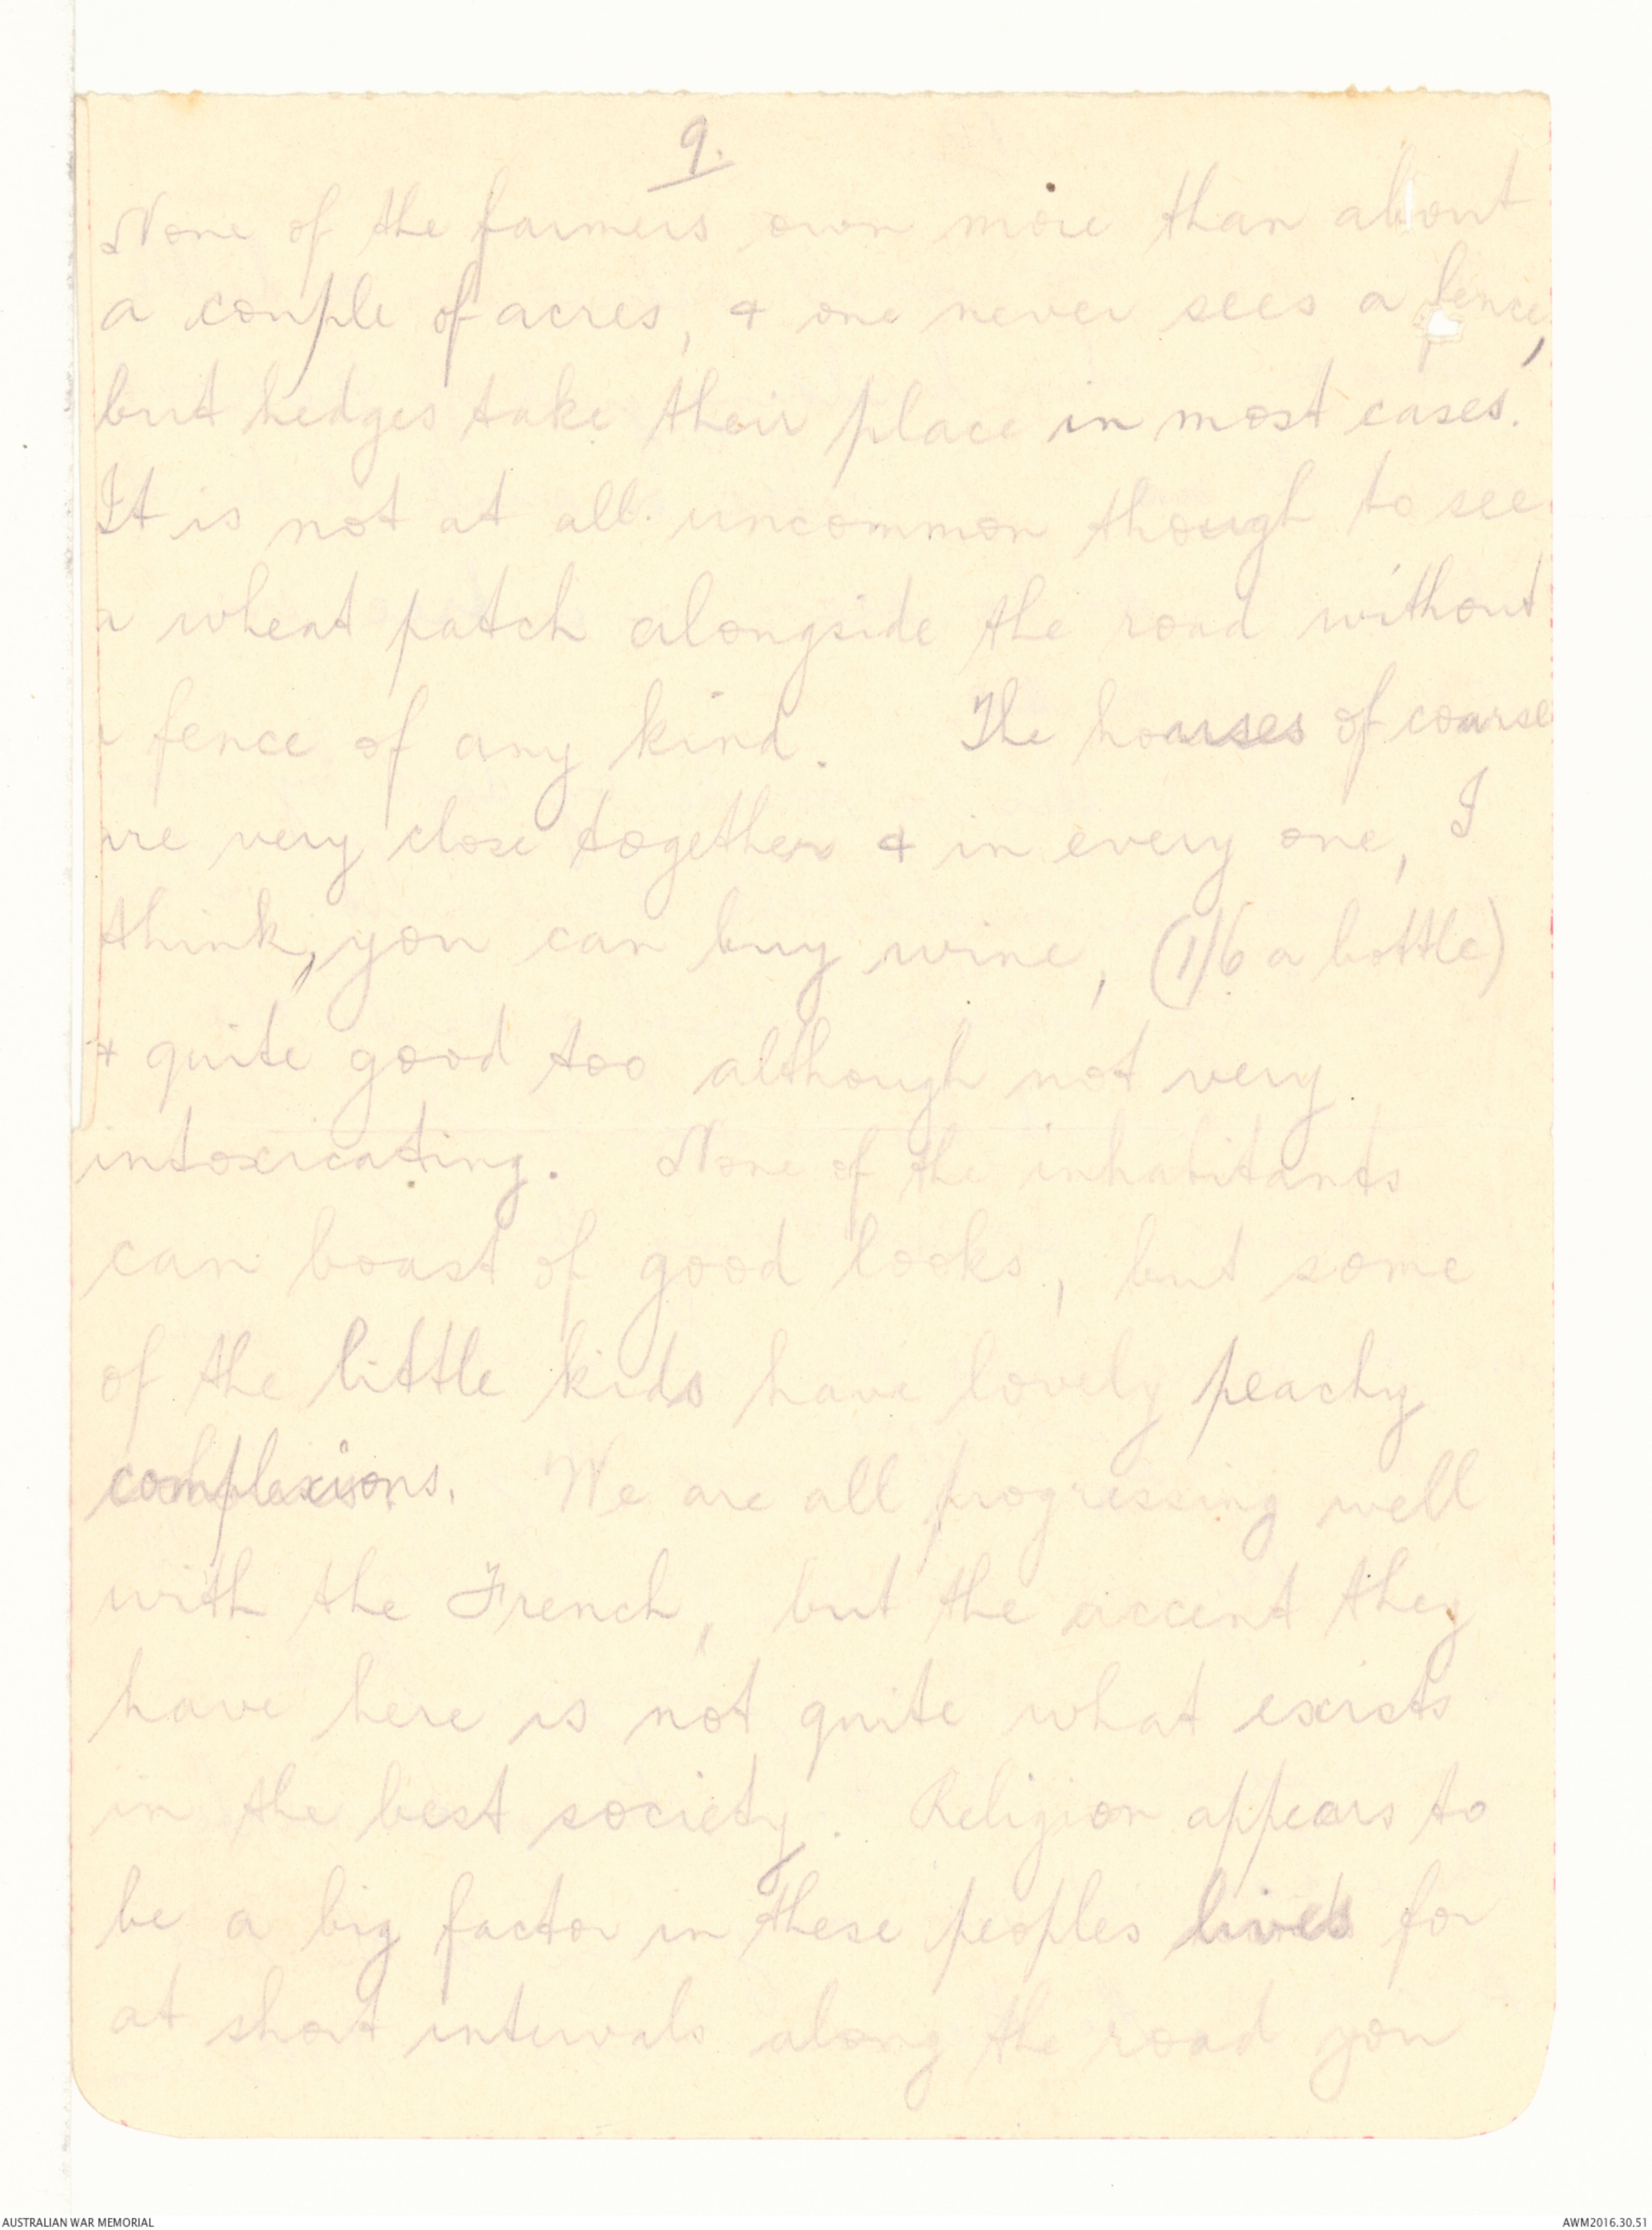 9.
None of the farmers own more than about
a couple of acres, & one never sees a fence,
but hedges take their place in most cases.
It is not at all uncommon though to see
a wheat patch alongside the road without
a fence of any kind. The houses of coarse
are very close together & in every one, I
think, you can buy wine, (1/6 a bottle)
& quite good too although not very
intoxicating. None of the inhabitants
can boast of good looks, but some
of the little kids have lovely peachy
complexions. We are all progressing well
with the French, but the accent they
have here is not quite what exists
in the best society. Religion appears to
be a big factor in these peoples lives for
at short intervals along the road you
AUSTRALIAN WAR MEMORIAL
AWM2016.30.51